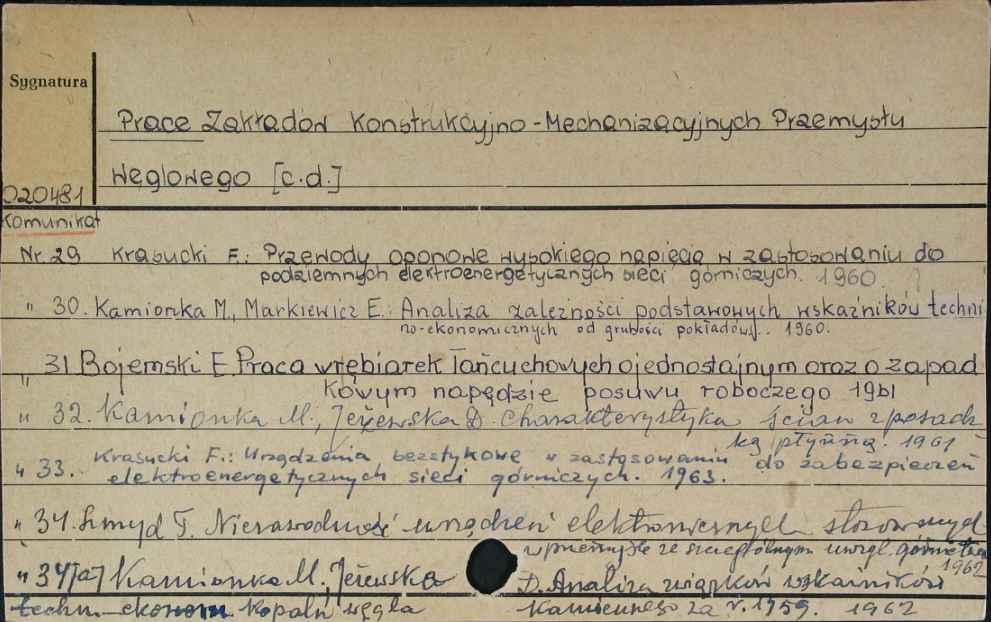 Sygnatura
Prace Zakładów Konstrukcyjno-Mechanizacyjnych Przemysłu
Węglowego [c.d.]
020481
Komunikat
Nr. 29 Krasucki F.: Przewody oponowe wysokiego napięcia w zastosowaniu do
podziemnych elektroenergetycznych sieci górniczych. 1960.
" 30. Kamionka M., Markiewicz E.: Analiza zależności podstawowych wskaźników techni
no-ekonomicznych od grubości pokładów. 1960.
" 31 Bojemski E Praca wrębiarek łańcuchowych o jednostajnym oraz o zapad
kowym napędzie posuwu roboczego 1961
" 32. Kamionka M., Jeżewska D. Charakterystyka ścian z posadz
ką płynną. 1961
" 33. Krasucki F.: Urządzenia bezstykowe w zastosowaniu do zabezpieczeń
elektroenergetycznych sieci górniczych. 1963.
" 34. Szmyd T. Niezawodność urządzeń elektronicznych stosowanych
w przemyśle ze szczególnym uwzgl. górnictwa
1962
" 34[a] Kamionka M., Jeżewska D. Analiza związków wskaźników
techn. ekonom kopalń węgla kamiennego za r. 1959. 1962